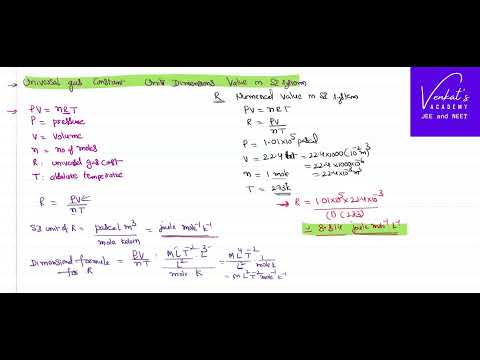 Universal gas Constant Units Dimensions Value in SI system
→ PV = nRT
P = pressure
V = volume
n = no of moles
R : universal gas const
T : absolute temperature
R = PV/nT
SI unit of R = pascal m³/mole kelvin = joule mol⁻¹ k⁻¹
Dimensional formula for R = PV/nT = MLT⁻²/L² · L³/mole K = ML⁴T⁻²/L² 1/mole k
= ML²T⁻² mol⁻¹ k⁻¹
R Numerical value in SI system
PV = nRT
R = PV/nT
P = 1.01×10⁵ pascal
V = 22.4 lit = 22.4×1000 (10⁻² m)³
= 22.4×1000×10⁻⁶
= 22.4×10⁻³ m³
n = 1 mole
T = 273k
→ R = 1.01×10⁵ × 22.4×10⁻³/(1) (273)
= 8.314 joule mol⁻¹ k⁻¹
Venkat's
ACADEMY
JEE and NEET